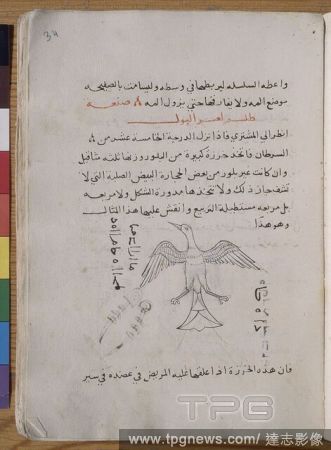 34
واعطه السلسله ليربطها في وسطه وليسامت بالصفيحه
موضع المه ولا يفارقها حتى يزول المه صنعة
طلسم لعسر البول
انظر الى المشتري فاذا نزل الدرجة الخامسة عشر من
السرطان فاتخذ خرزة كبيرة من البلور وزنها ثلثه مثاقيل
وان كانت غير بلور من بعض الحجارة البيض الصلبة التي لا
تتخذها مدورة الشكل ولا مربعه
بل مربعه مستطيلة التربيع وانقش عليها هذا المثال
وهو هذا
فان هذه الخرزة اذا علقها عليه المريض في عضده في سير
TPG
www.tpgnews.com / 達志影像